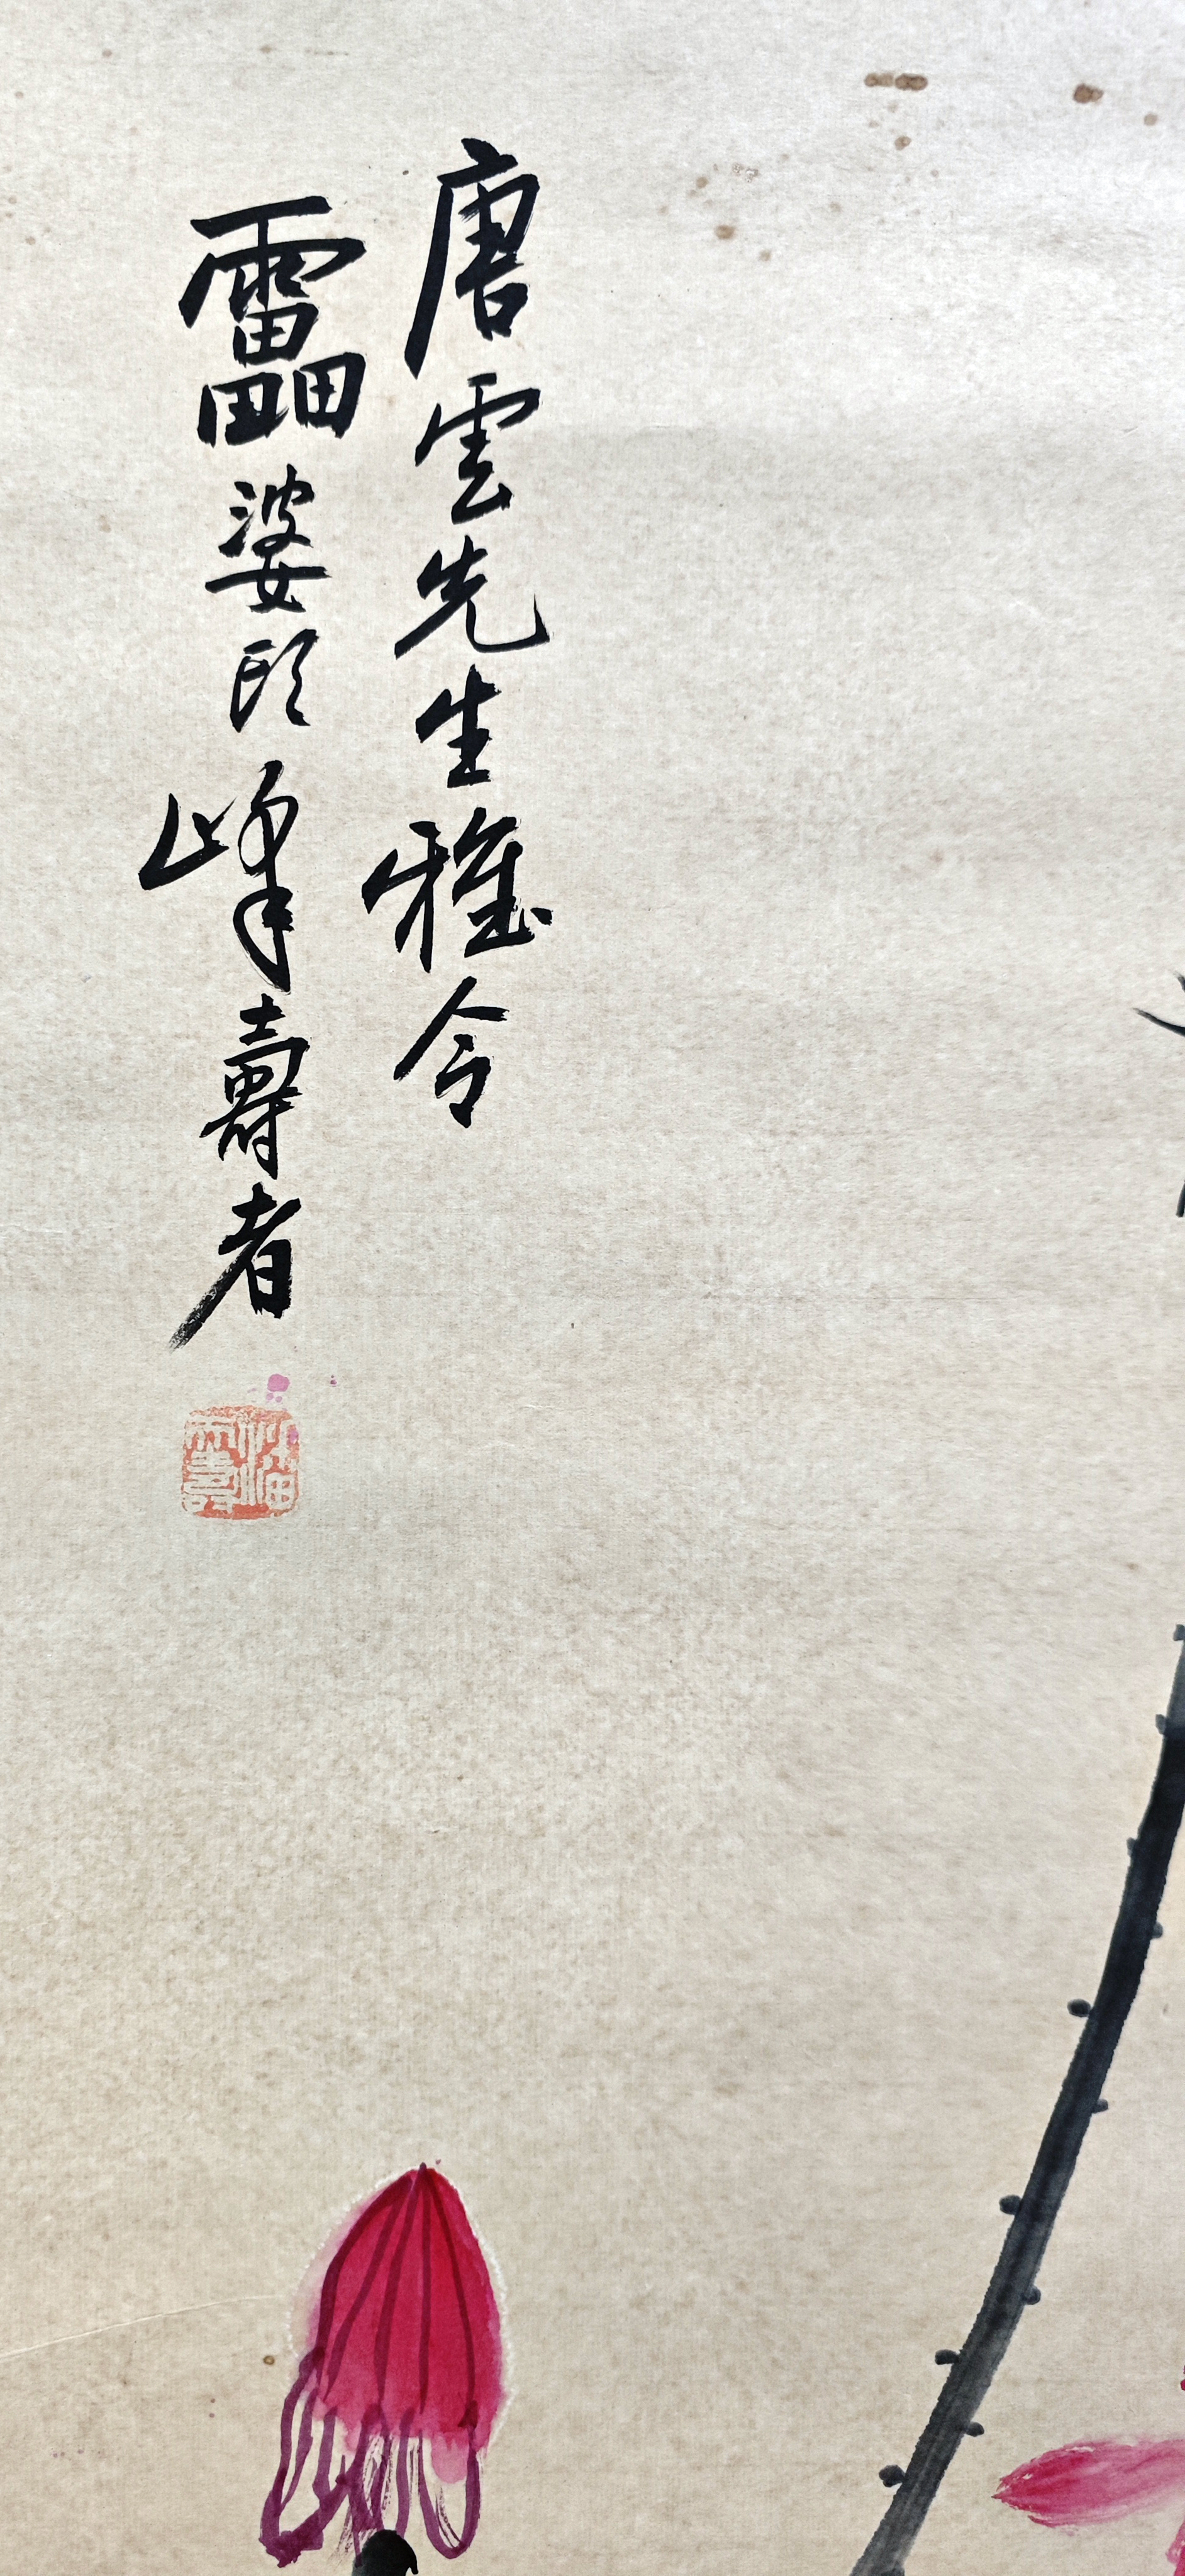 唐雲先生雅令
靁婆頭峰壽者
潘天壽